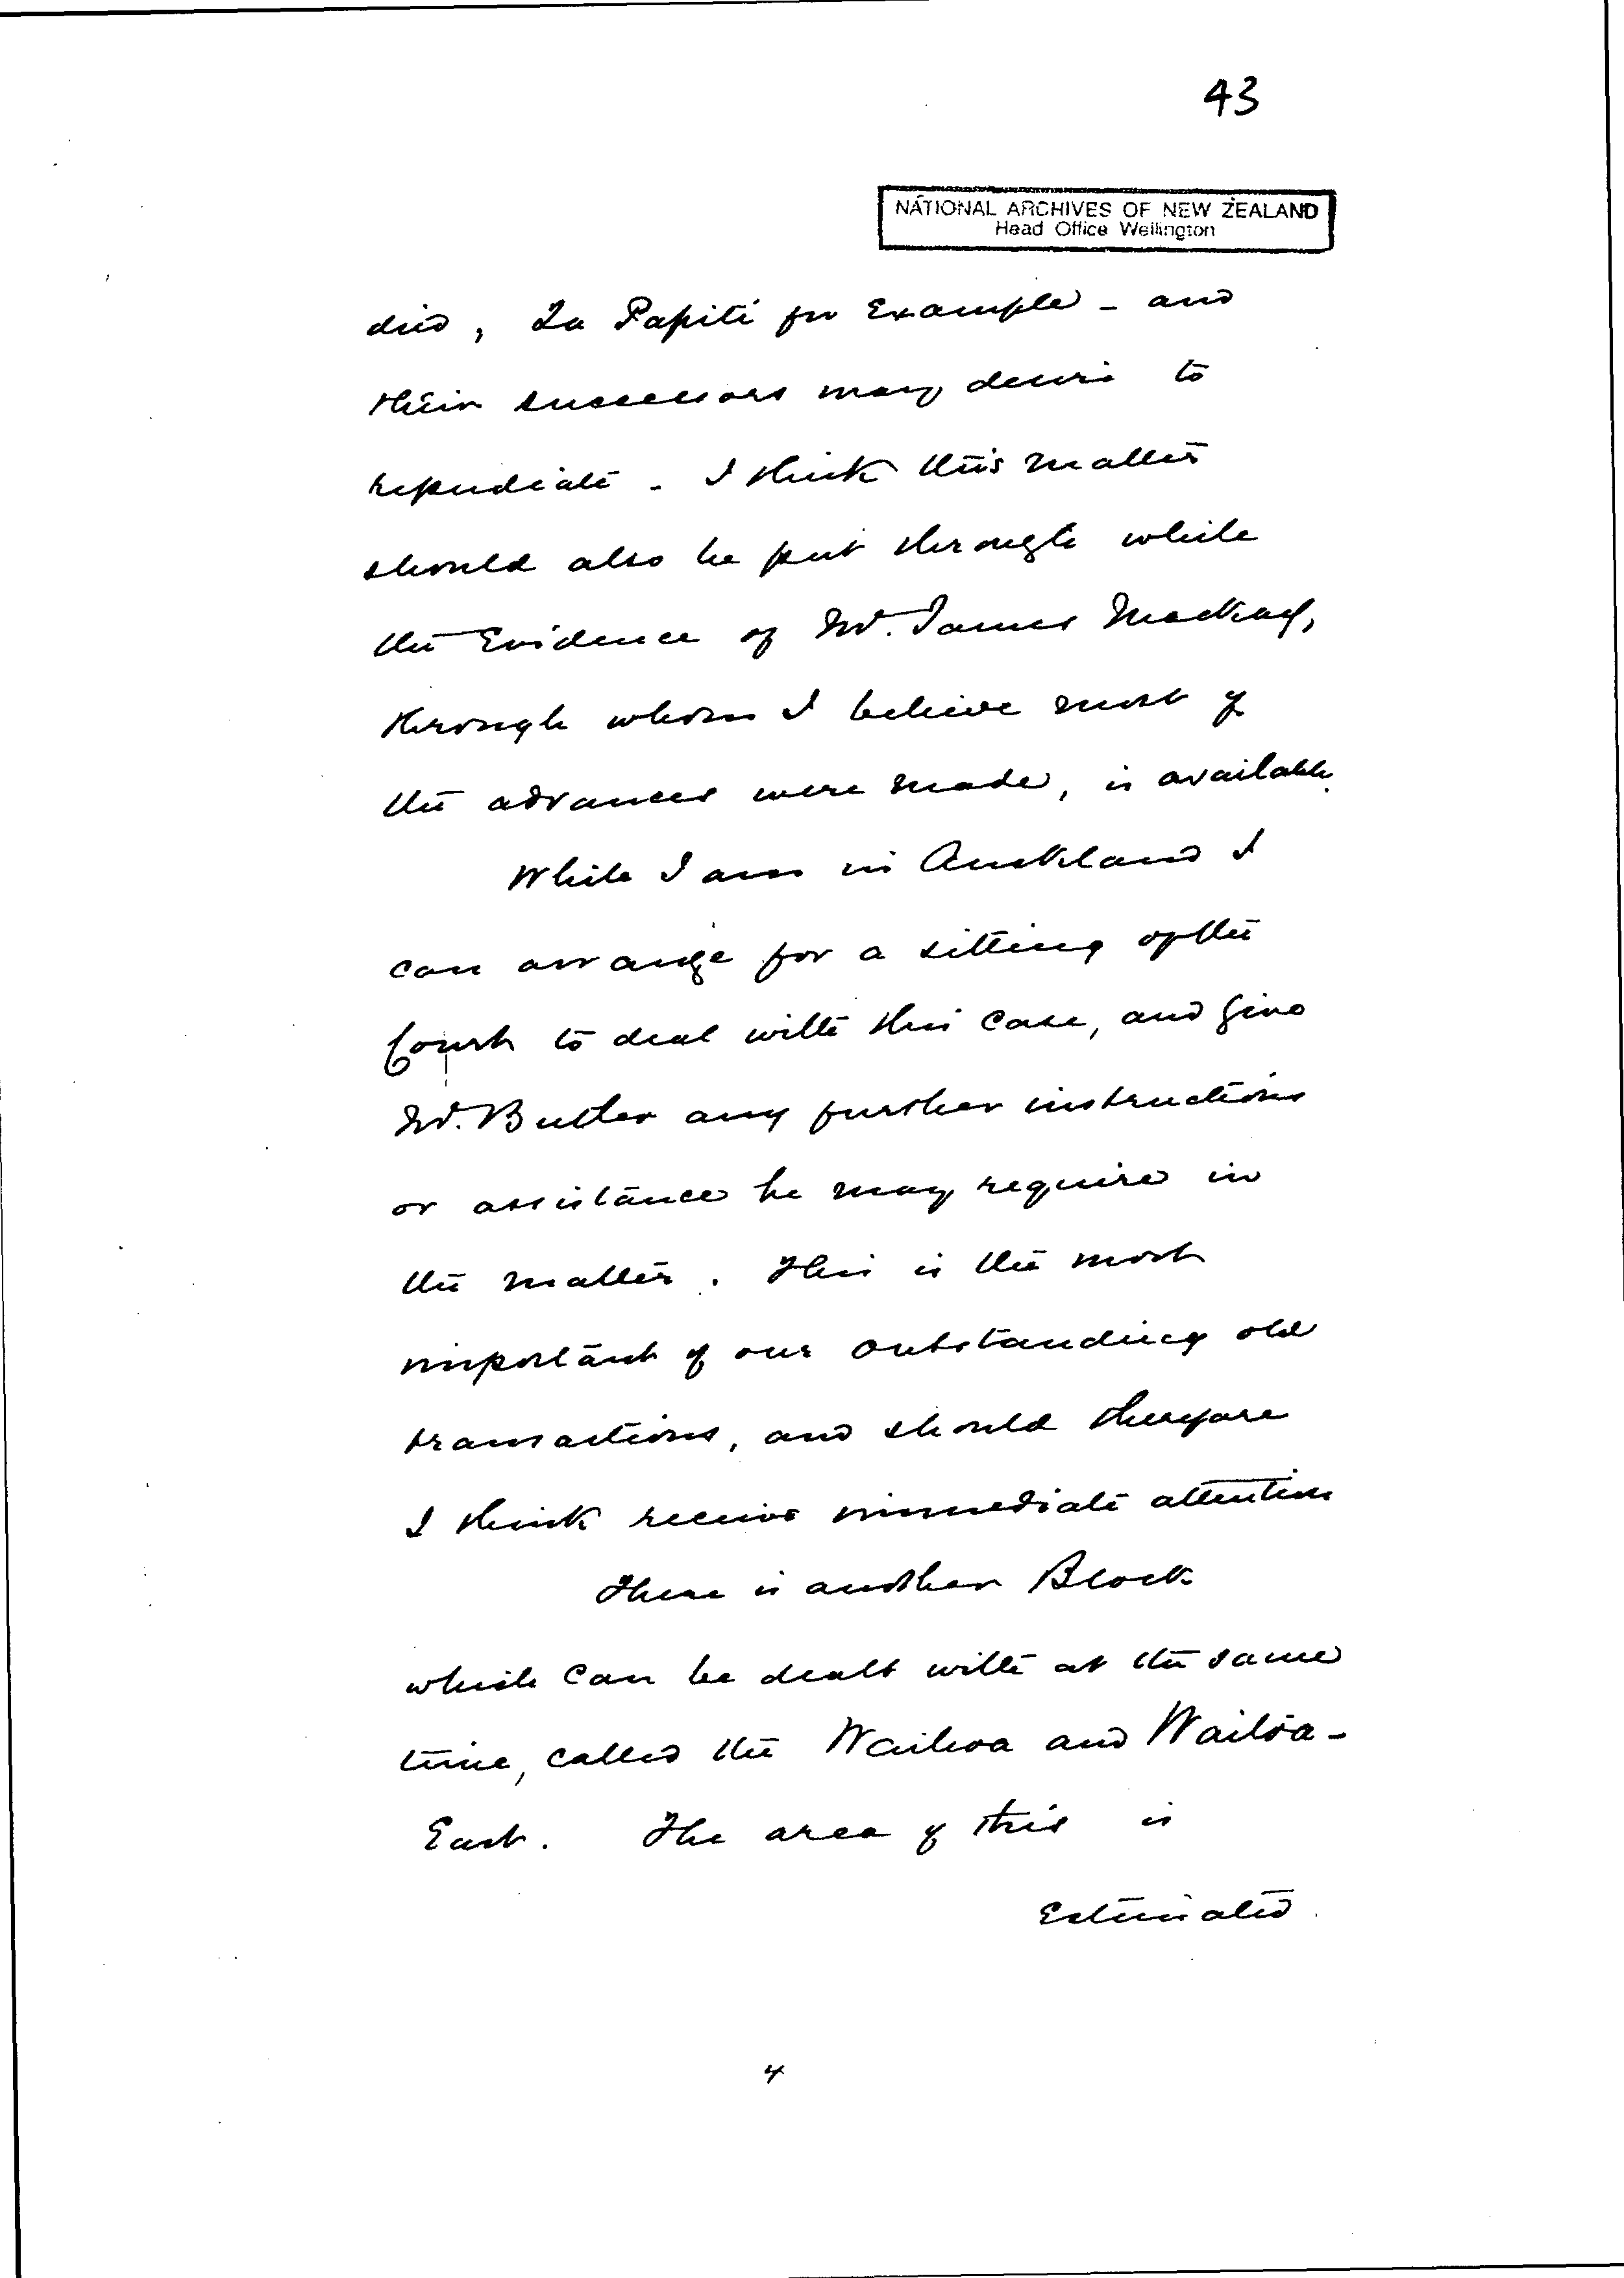 43
NATIONAL ARCHIVES OF NEW ZEALAND
Head Office Wellington
died, Te Papiti for Example - and
their successors may desire to
repudiate - I think this matter
should also be put through while
the Evidence of Mr. James Mackay,
through whom I believe most of
the advances were made, is available.
While I am in Auckland I
can arrange for a sitting of the
Court to deal with this Case, and give
Mr. Butler any further instructions
or assistance he may require in
the matter. This is the most
important of our outstanding old
transactions, and should therefore
I think receive immediate attention
There is another Block
which can be dealt with at the same
time, called the and
East. The area of this is
Estimated.
4